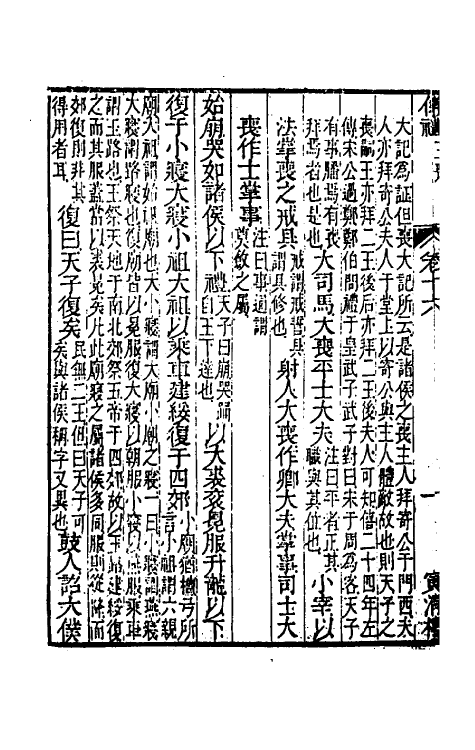 大記為証但喪大記所云是諸侯之喪主人拜寄公于門西夫
人亦拜寄公夫人于堂上以寄公與主人體敵故也則天子之
喪嗣王亦拜二王後亦拜二王後夫人可知僖二十四年左
傳宋公過鄭鄭伯問禮于皇武子武子對曰宋于周為客天子
有事膰焉有喪拜焉者也是也
大司馬大喪平士大夫
注曰平者正其職與其位也
小宰以
法掌喪之戒具
戒謂戒誓具謂具修也
射人大喪作卿大夫掌事司士大
喪作士掌事
注曰事謂奠斂之屬
始崩哭如諸侯以下禮
天子曰崩哭踊自王下達也
以大裘袞冕服升龍以下
復于小寢大寢小祖大祖以乘車建綏復于四郊
小廟猶檀弓所言小祖謂六親
廟大祖謂始祖廟也大小寢謂大廟小廟之寢一曰小寢謂燕寢
大寢謂路寢也復廟皆以冕服復大寢以朝服小寢以燕服乘車
謂玉路也王祭天地于南北郊祭五帝于四郊故以玉路建綏復
之而其服蓋當以裘冕矣凡此廟寢之屬諸侯多同服則從降而
郊復則非其得用者耳
復曰天子復矣
民無二王但曰天子可矣與諸侯稱字又異也
鼓人詔大僕
卷十六
一